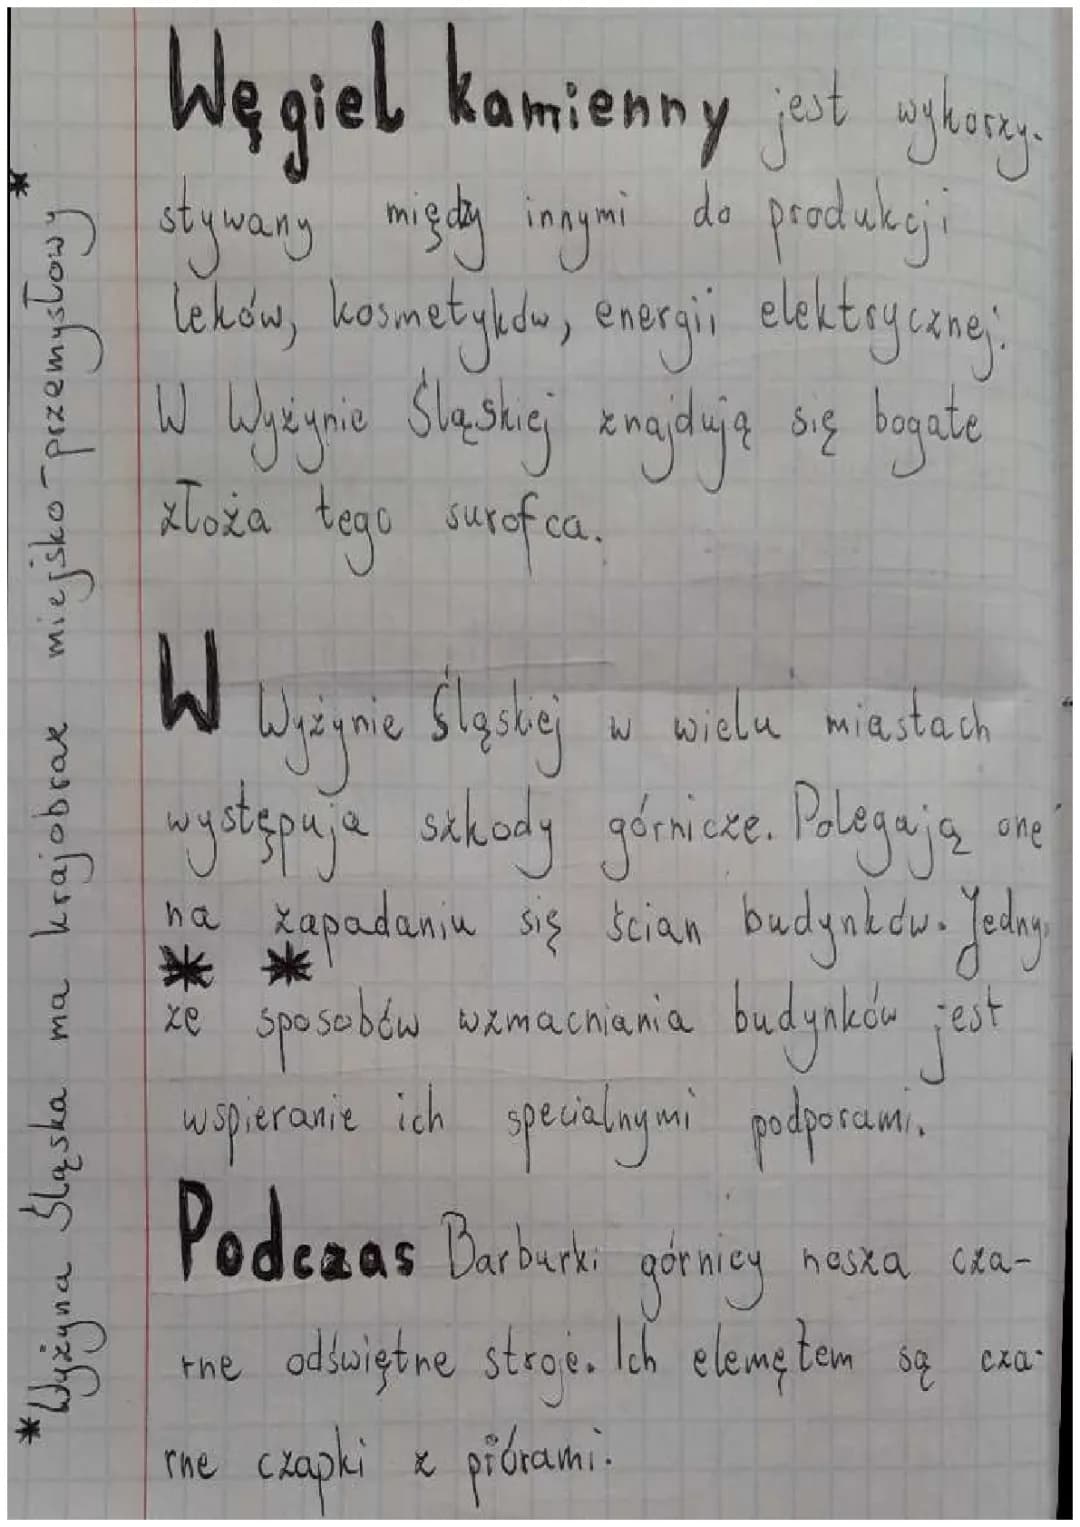 Węgiel kamienny jest wykorzy-
stywany między innymi do produkcji
leków, kosmetyków, energii elektrycznej.
W Wyżynie Śląskiej znajdują się bogate
złoża tego surofca.
W Wyżynie Śląskiej w wielu miastach
występuja szkody górnicze. Polegają one
na zapadaniu się ścian budynków. Jedny.
* *
ze sposobów wzmacniania budynków jest
wspieranie ich specialnymi podporami.
Podczas Barburki górnicy nosza cza-
rne odświętne stroje. Ich elemętem są cza-
rne czapki z piórami.
* Wyżyna Śląska ma krajobraz miejsko-przemysłowy *